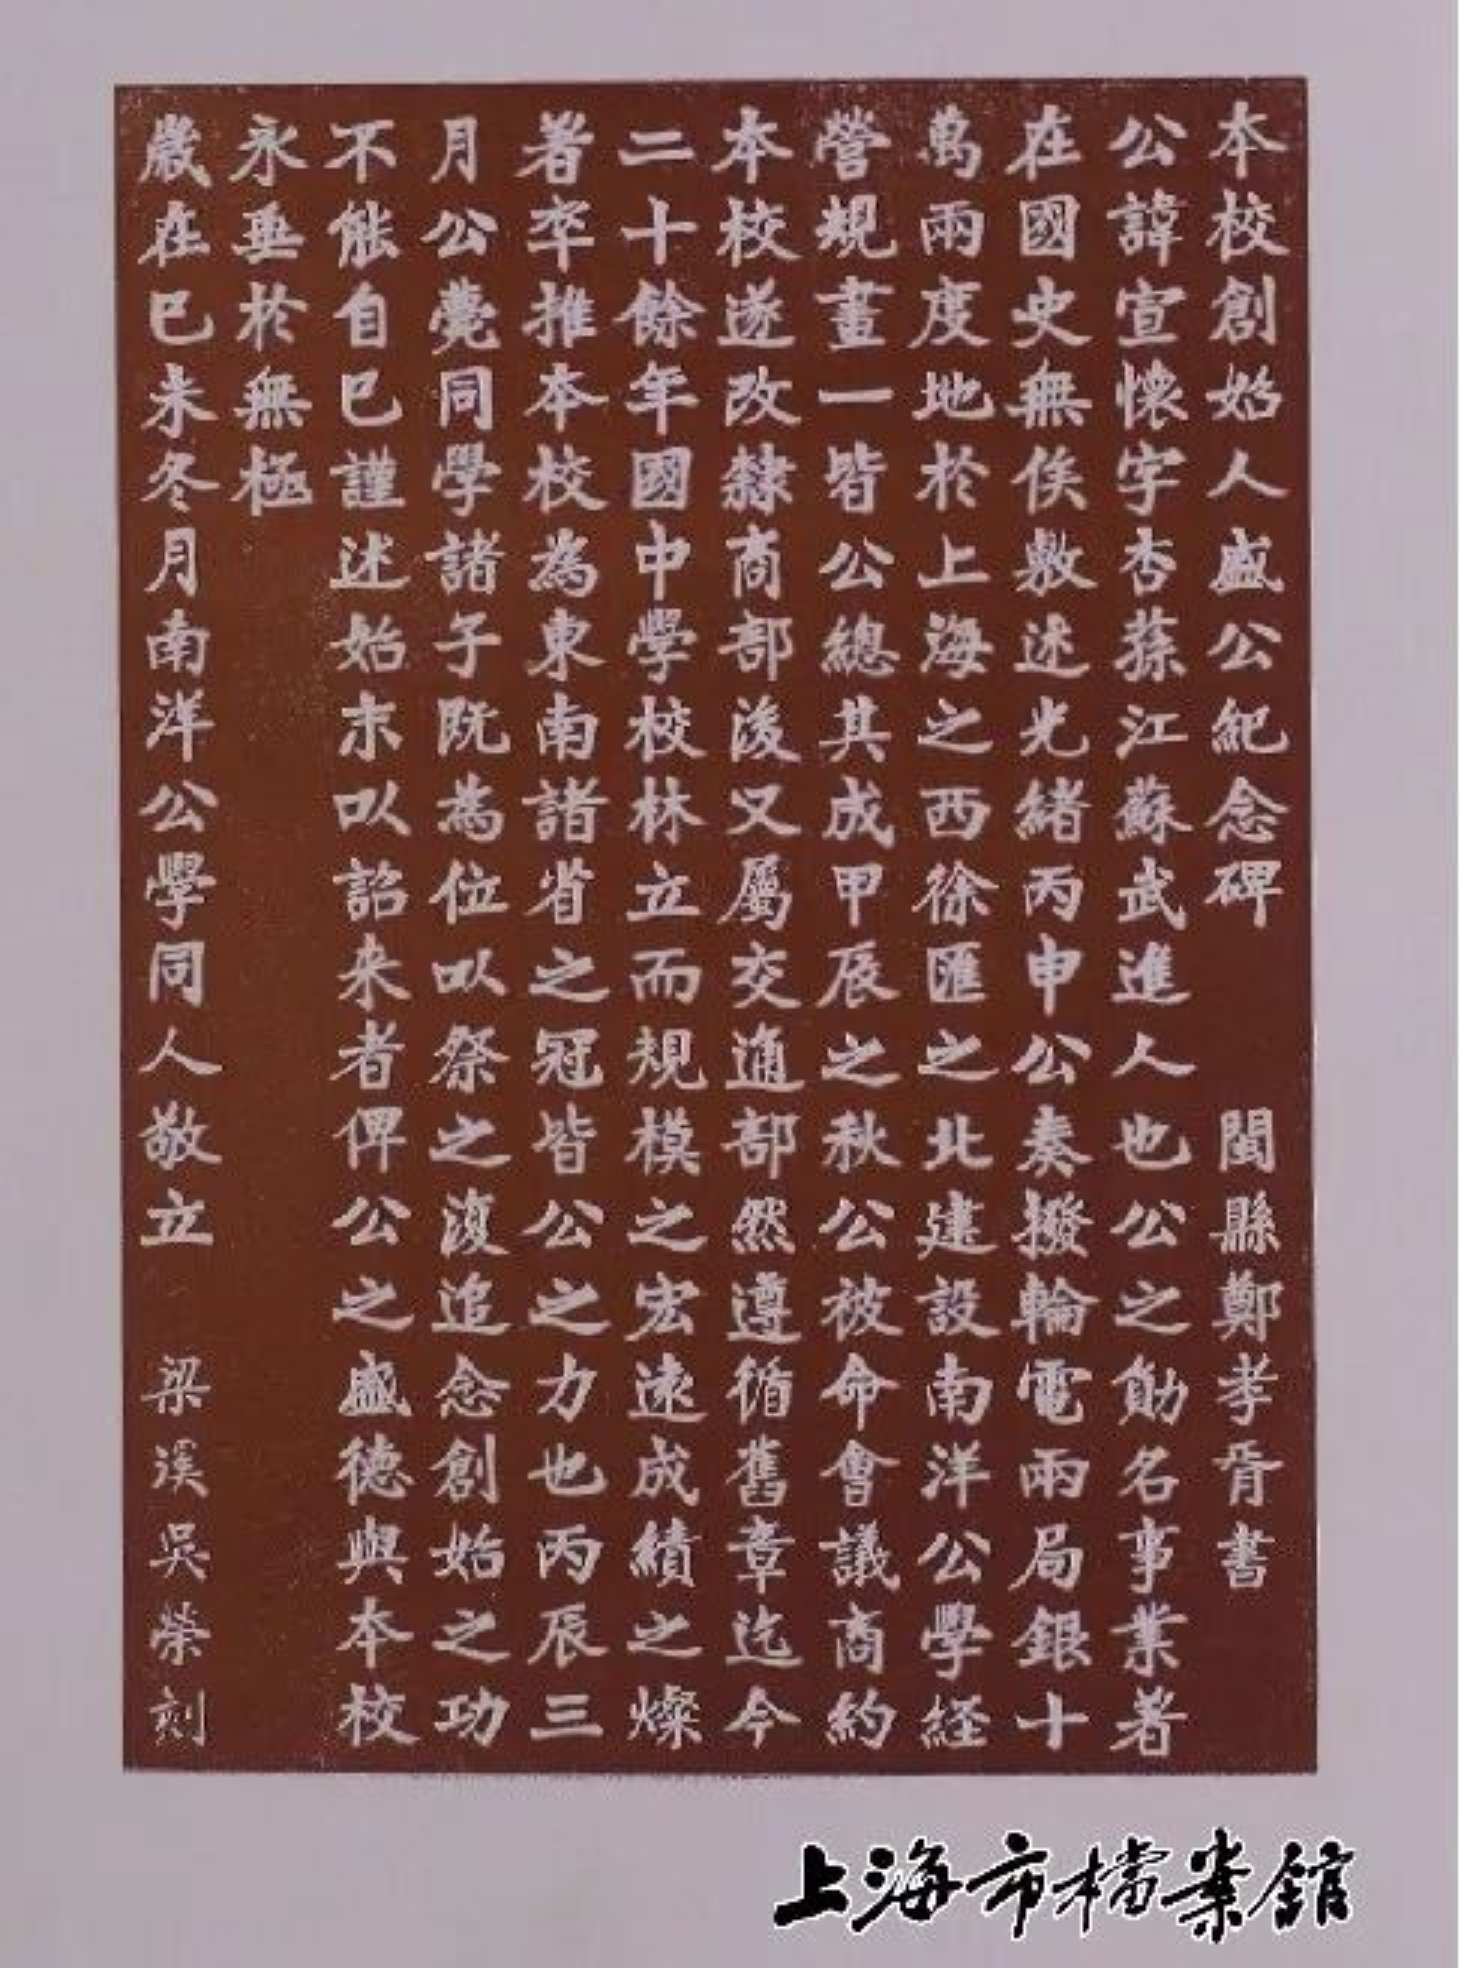 本校創始人盛公紀念碑 閩縣鄭孝胥書
公諱宣懷字杏蓀江蘇武進人也公之勛名事業著
在國史無俟敷述光緒丙申公奏撥輪電兩局銀十
萬兩度地於上海之西徐匯之北建設南洋公學經
營規畫一皆公總其成甲辰之秋公被命會議商約
本校遂改隸商部後又屬交通部然遵循舊章迄今
二十餘年國中學校林立而規模之宏遠成績之燦
著卒推本校為東南諸省之冠皆公之力也丙辰三
月公薨同學諸子既為位以祭之復追念創始之功
不能自已謹述始末以詔来者俾公之盛德與本校
永垂於無極
歲在已未冬月南洋公學同人敬立 梁溪吳榮刻
上海市檔案館